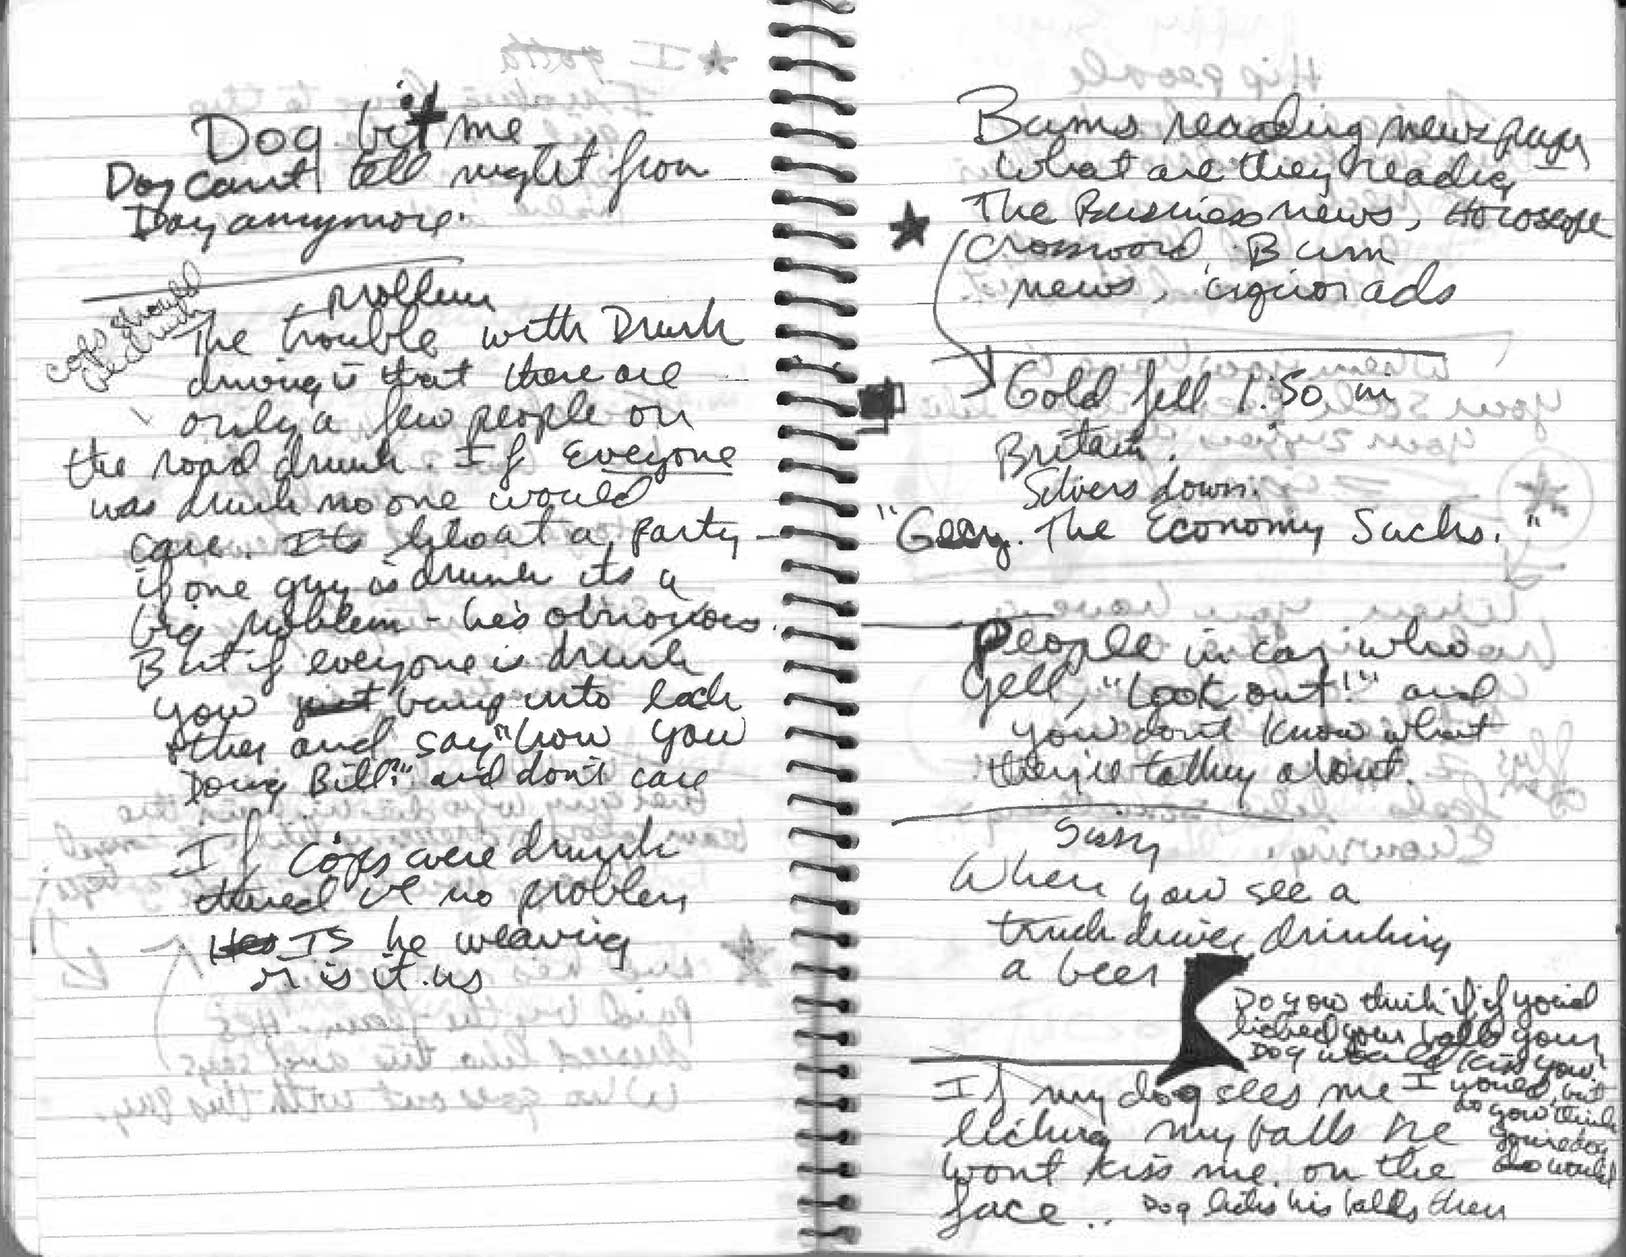 Dog bit me
Dog cant tell night from
Day anymore.
cops should
be drunk
problem
The trouble with Drunk
driving is that there are
only a few people on
the road drunk. If Everyone
was drunk no one would
care. Its like at a party -
if one guy is drunk its a
big problem - he's obnoxious.
But if everyone is drunk
you just bump into each
other and say "how you
Doing Bill?" and don't care
If cops were drunk
there'd be no problem
He's Is he weaving
or is it us
Bums reading newspaper
What are they reading
The Business news, Horoscope
Crossword, Bum
news, liquor ads
Gold fell 1.50 in
Britain.
Silvers down.
"Geezy. The Economy Sucks."
People in car who
yell, "Look out!" and
you dont know what
they're talking about.
Sissy
When you see a
truck driver drinking
a beer
Do you think if if you'd
licked your balls your
Dog would kiss you
I would, but
do you think
your dog
would
If my dog sees me
licking my balls he
wont kiss me on the
face.. Dog licks his balls then